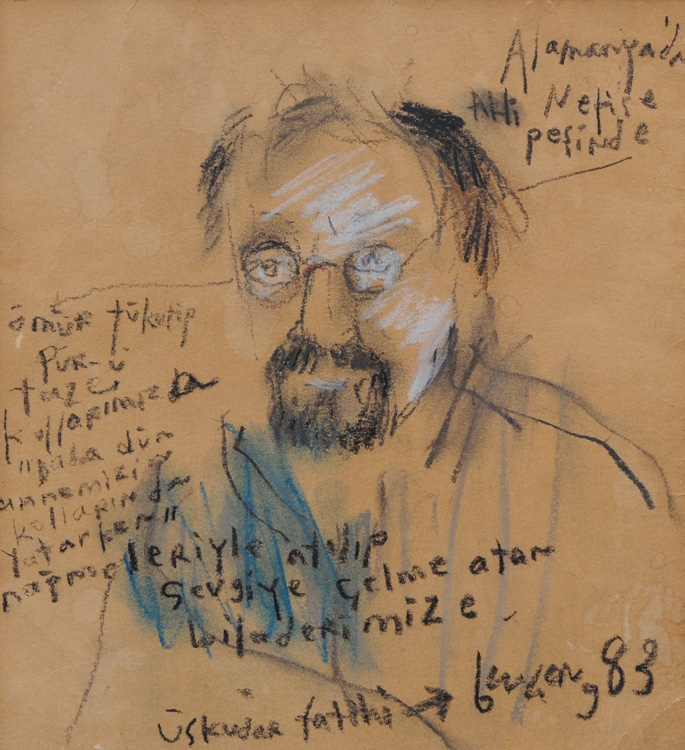 Alamanya'da
Nefise
peşinde
ömür tüketip
pür-ü
taze
kollarımızda
"daha dün
annemizin
kollarında
yatarken"
nağmeleriyle atılıp
sevgiye çelme atan
biladerimize
Üsküdar fatihi
83